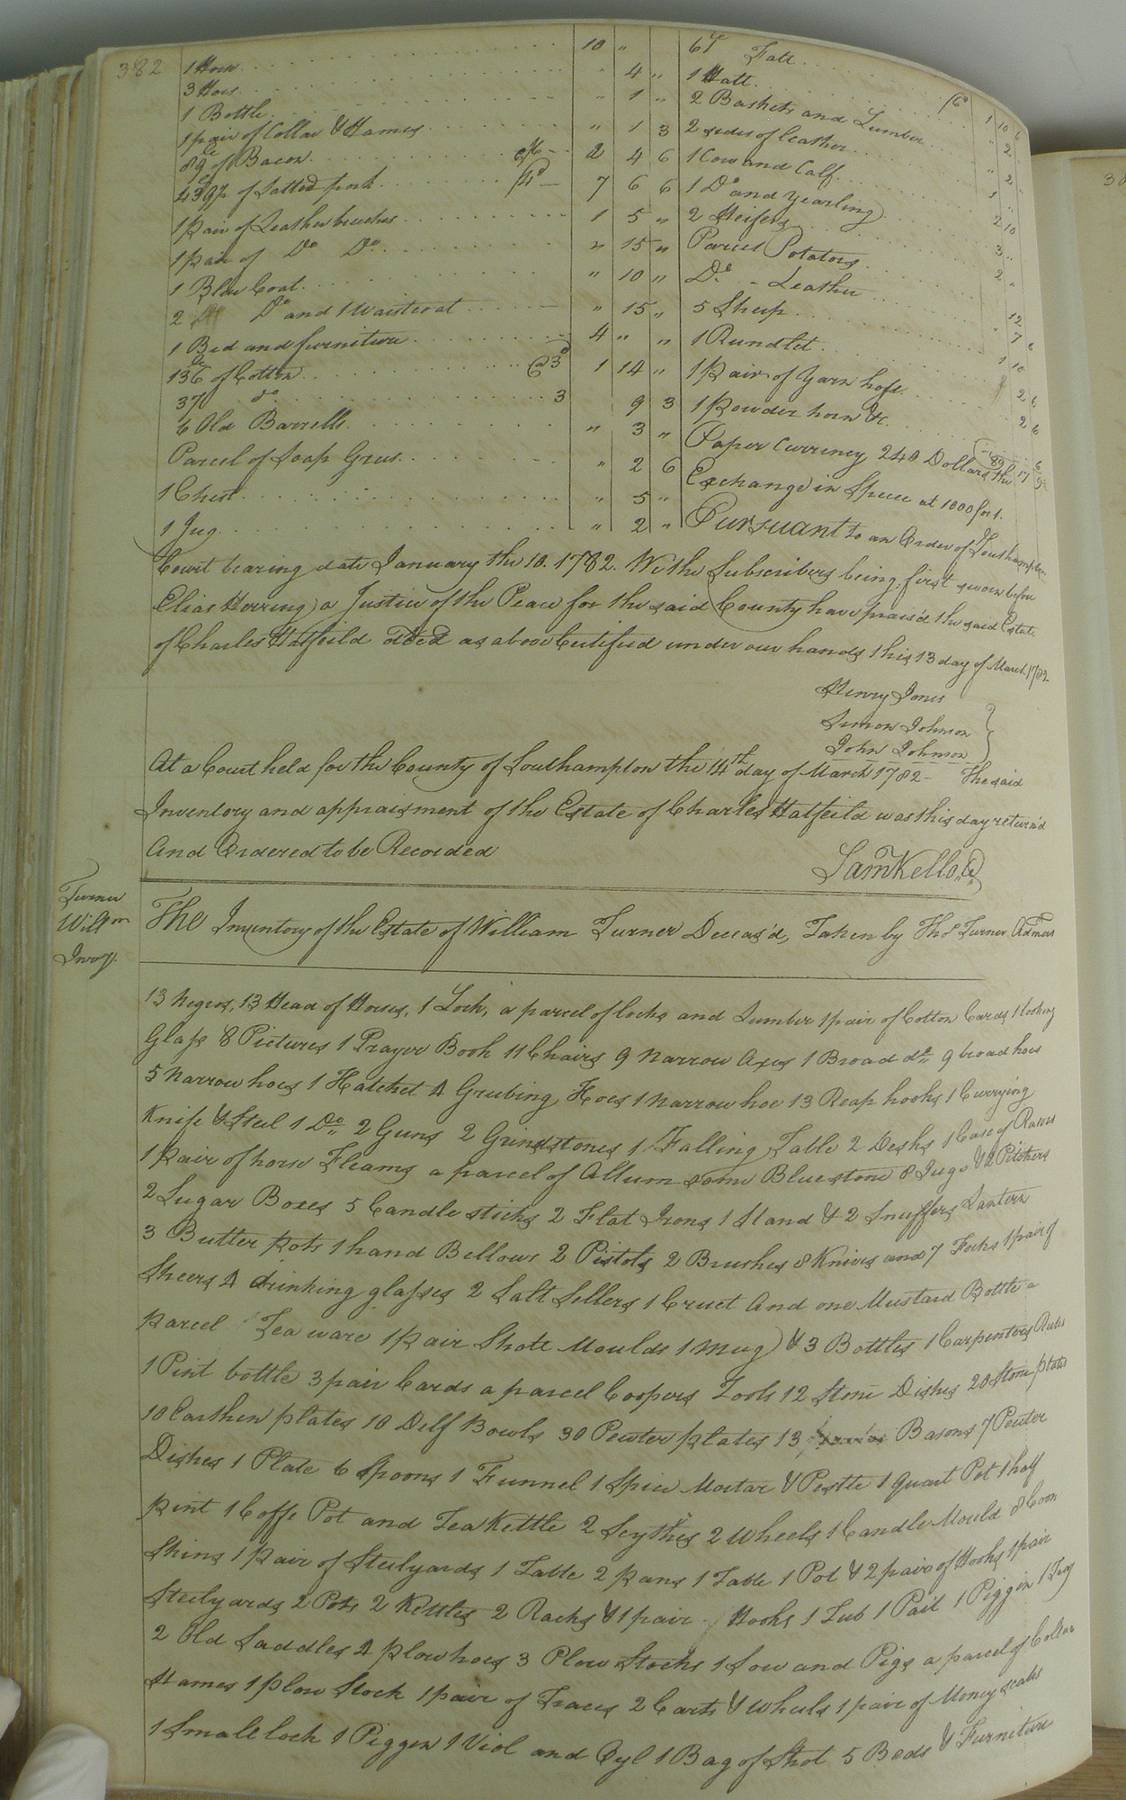 382
1 Horse 10 "
3 Hoes " 4 "
1 Bottle " 1 "
1 pair of Collar & Hames " 1 3
89 lb of Bacon 2 4 6
of Salted pork 7 6 6
1 pair of Leather breeches 1 5 "
1 pair of Do Do " 15 "
1 Blue Coat " 10 "
2 Do and 1 Waistcoat " 15 "
1 Bed and furniture 4 " "
136 of Cotton @ 3d 1 14 "
37 do 3 9 3
6 Old Barrells " 3 "
Parcel of Soap Grees " 2 6
1 Chest " 5 "
1 Jug " 2 "
Fatt
1 Hatt
2 Baskets and Lumber
2 sides of leather
1 Cow and Calf
1 Do and Yearling
2 Heifers
Parcel Potatoes
Do - Leather
5 Sheep
1 Rundlet
1 pair of Yarn hose
1 powder horn &c
Paper Currency 240 Dollars the
Exchange in Specie at 1000 for 1.
Pursuant to an Order of Southampton
Court bearing date January the 10. 1782. We the Subscribers being first sworn before
Elias Herring a Justice of the Peace for the said County have praisd the said Estate
of Charles Hatfeild dced as above Certified under our hands this 13 day of March 1782
Henry Jones
Simon Johnson
John Johnson
At a Court held for the County of Southampton the 14th day of March 1782 - The said
Inventory and appraisment of the Estate of Charles Hatfeild was this day return'd
And Ordered to be Recorded
Saml Kello, C
Turner
Willm
Invy.
The Inventory of the Estate of William Turner Deceas'd, Taken by Thos Turner Admor
13 Negros, 13 Head of Horses, 1 Lock, a parcel of locks and Lumber 1 pair of Cotton Cards 1 looking
Glass 8 Pictures 1 Prayer Book 11 Chairs 9 Narrow Axes 1 Broad do 9 broad hoes
5 Narrow hoes 1 Hatchet 4 Grubing Hoes 1 narrow hoe 13 Reap hooks 1 Currying
Knife & Steel 1 Do 2 Guns 2 Grindstones 1 Falling Table 2 Desks 1 Case of Rasors
1 pair of horse Fleams a parcel of Allum some Bluestone 8 Jugs & 2 Pitchers
2 Sugar Boxes 5 Candlesticks 2 Flat Irons 1 Stand & 2 Snuffers Lantern
3 Butter pots 1 hand Bellows 2 Pistols 2 Brushes 8 Knives and 7 Forks 1 pair of
Sheers 4 drinking glasses 2 Salt Sellers 1 Cruet And one Mustard Bottle a
parcel Tea ware 1 pair Shote Moulds 1 Mug & 3 Bottles 1 Carpenters Rules
1 Pint bottle 3 pair Cards a parcel Coopers Tools 12 Stone Dishes 20 Stone plates
10 Earthen plates 10 Delf Bowls 30 Pewter plates 13 Basons 7 Pewter
Dishes 1 Plate 6 Spoons 1 Funnel 1 Spice Mortar & Pestle 1 quart Pot 1 half
pint 1 Coffe Pot and Tea Kettle 2 Scythes 2 Wheels 1 Candle Mould 8 Coon
Skins 1 pair of Steelyards 1 Table 2 pans 1 Table 1 Pot & 2 pair of Hooks 1 pair
Steelyards 2 Pots 2 Kettles 2 Racks & 1 pair Hooks 1 Tub 1 Pail 1 Piggin 1 Tray
2 Old Saddles 4 plow hoes 3 Plow Stocks 1 Sow and Pigs a parcel of Collar
Hames 1 plow Stock 1 pair of Traces 2 Carts & wheels 1 pair of Money scales
1 Small lock 1 Piggen 1 Viol and Oyl 1 Bag of Shot 5 Beds & Furniture